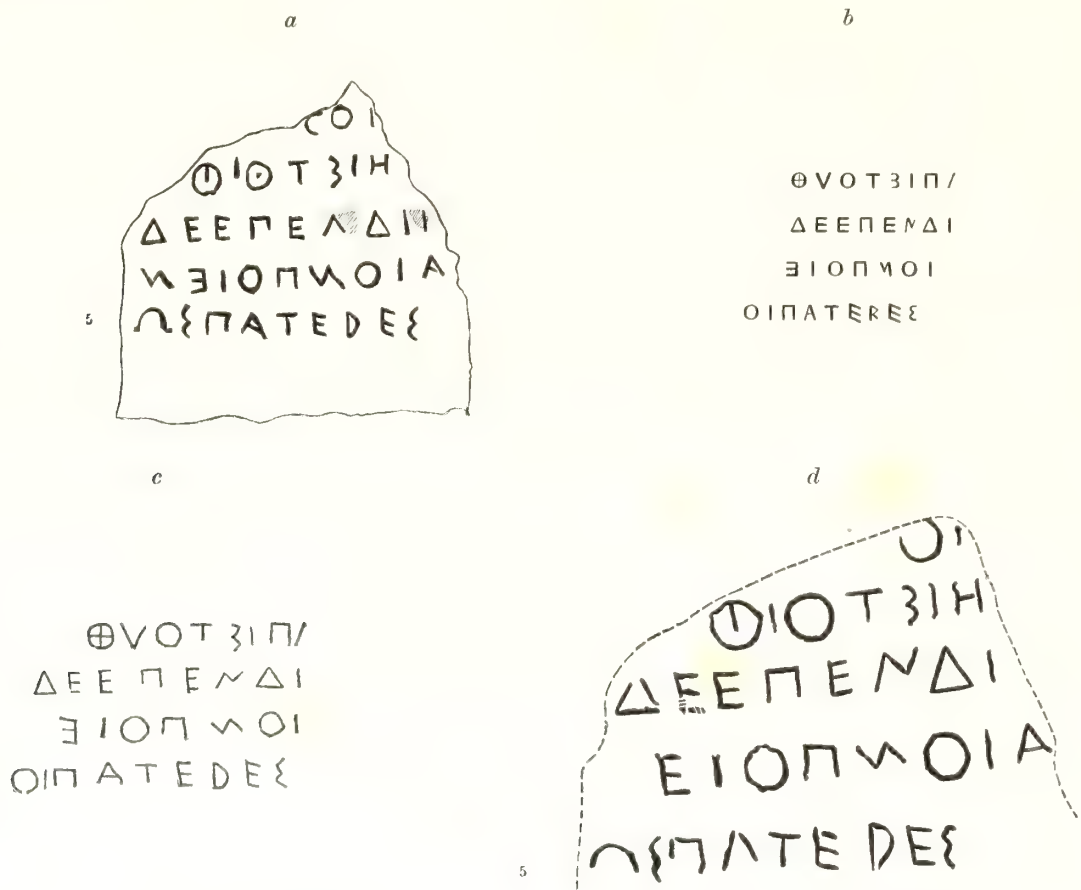 a
b
ϹΟΙ
ΘΙΟΤΣΙΗ
ΔΕΕΠΕΝΔΙ
ΝΕΙΟΠΝΟΙΑ
5 ΣΠΑΤΕΡΕΣ
ΘVΟΤΣΙΠ/
ΔΕΕΠΕΝΔΙ
ΕΙΟΠΝΟΙ
ΟΙΠΑΤΕRΕΣ
c
d
ΘVΟΤΣΙΠ/
ΔΕΕΠΕΝΔΙ
ΕΙΟΠΝΟΙ
ΟΙΠΑΤΕDΕΣ
ΟΙ
ΘΙΟΤΣΙΗ
ΔΕΕΠΕΝΔΙ
ΕΙΟΠΝΟΙΑ
5 ΣΠΑΤΕDΕΣ